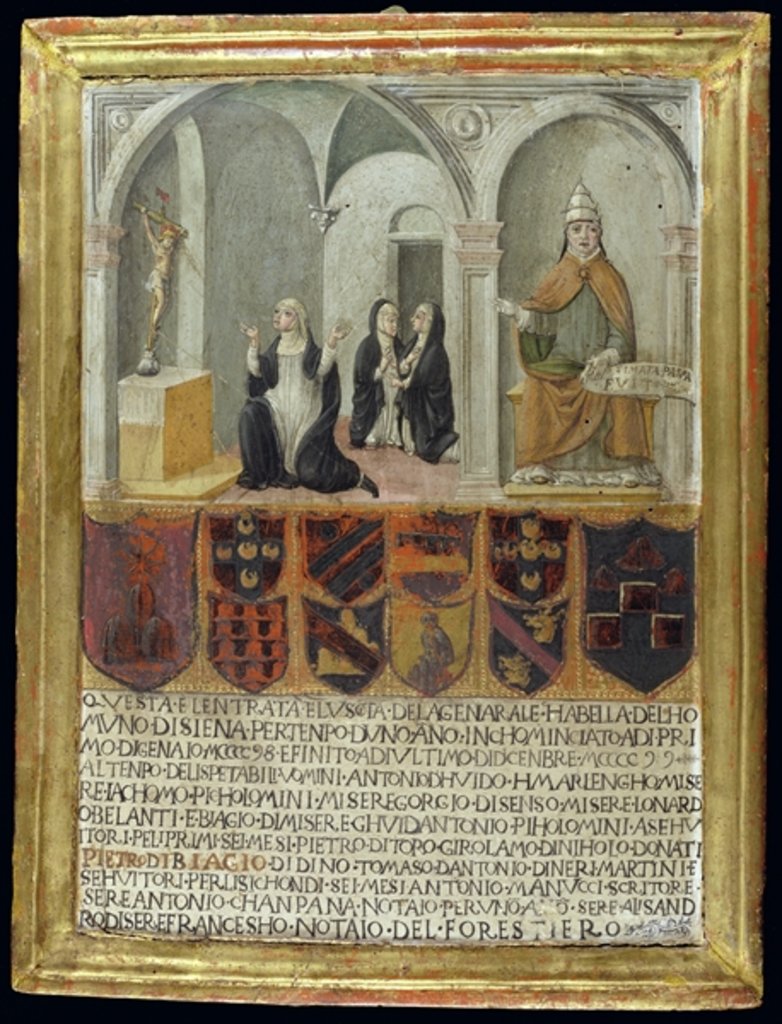 FVIT
QVESTA·E·LENTRATA·E·LVSCITA·DELAGENIARALE·HABELLA·DELHO
MVNO·DI·SIENA·PERTENPO·DVNO·ANO·INCHOMINCIATO·ADI·PRI
MO·DIGENAIO·MCCCC98·E·FINITO·ADI·VLTIMO·DIDCENBRE·MCCCC99
ALTENPO·DELISPETABILI·VOMINI·ANTONIO·DHVIDO·HMARLENGHO·MISE
RE·IACHOMO·PICHOLOMINI·MISERE·GORGIO·DISENSO·MISERE·LONARD
OBELANTI·E·BIAGIO·DIMISERE·GHVIDANTONIO·PIHOLOMINI·ASEHV
ITORI·PELI·PRIMI·SEI·MESI·PIETRO·DITOPO·GIROLAMO·DINIHOLO·DONATI
PIETRO·DI·BIAGIO·DI·DINO·TOMASO·DANTONIO·DINERI·MARTINI·E
SEHVITORI·PERLISICHONDI·SEI·MESI·ANTONIO·MANVCCI·SCRITORE·
SERE·ANTONIO·CHANPANA·NOTAIO·PERVNO·ANO·SERE·ALISAND
RO·DISERE·FRANCESHO·NOTAIO·DEL·FORESTIERO